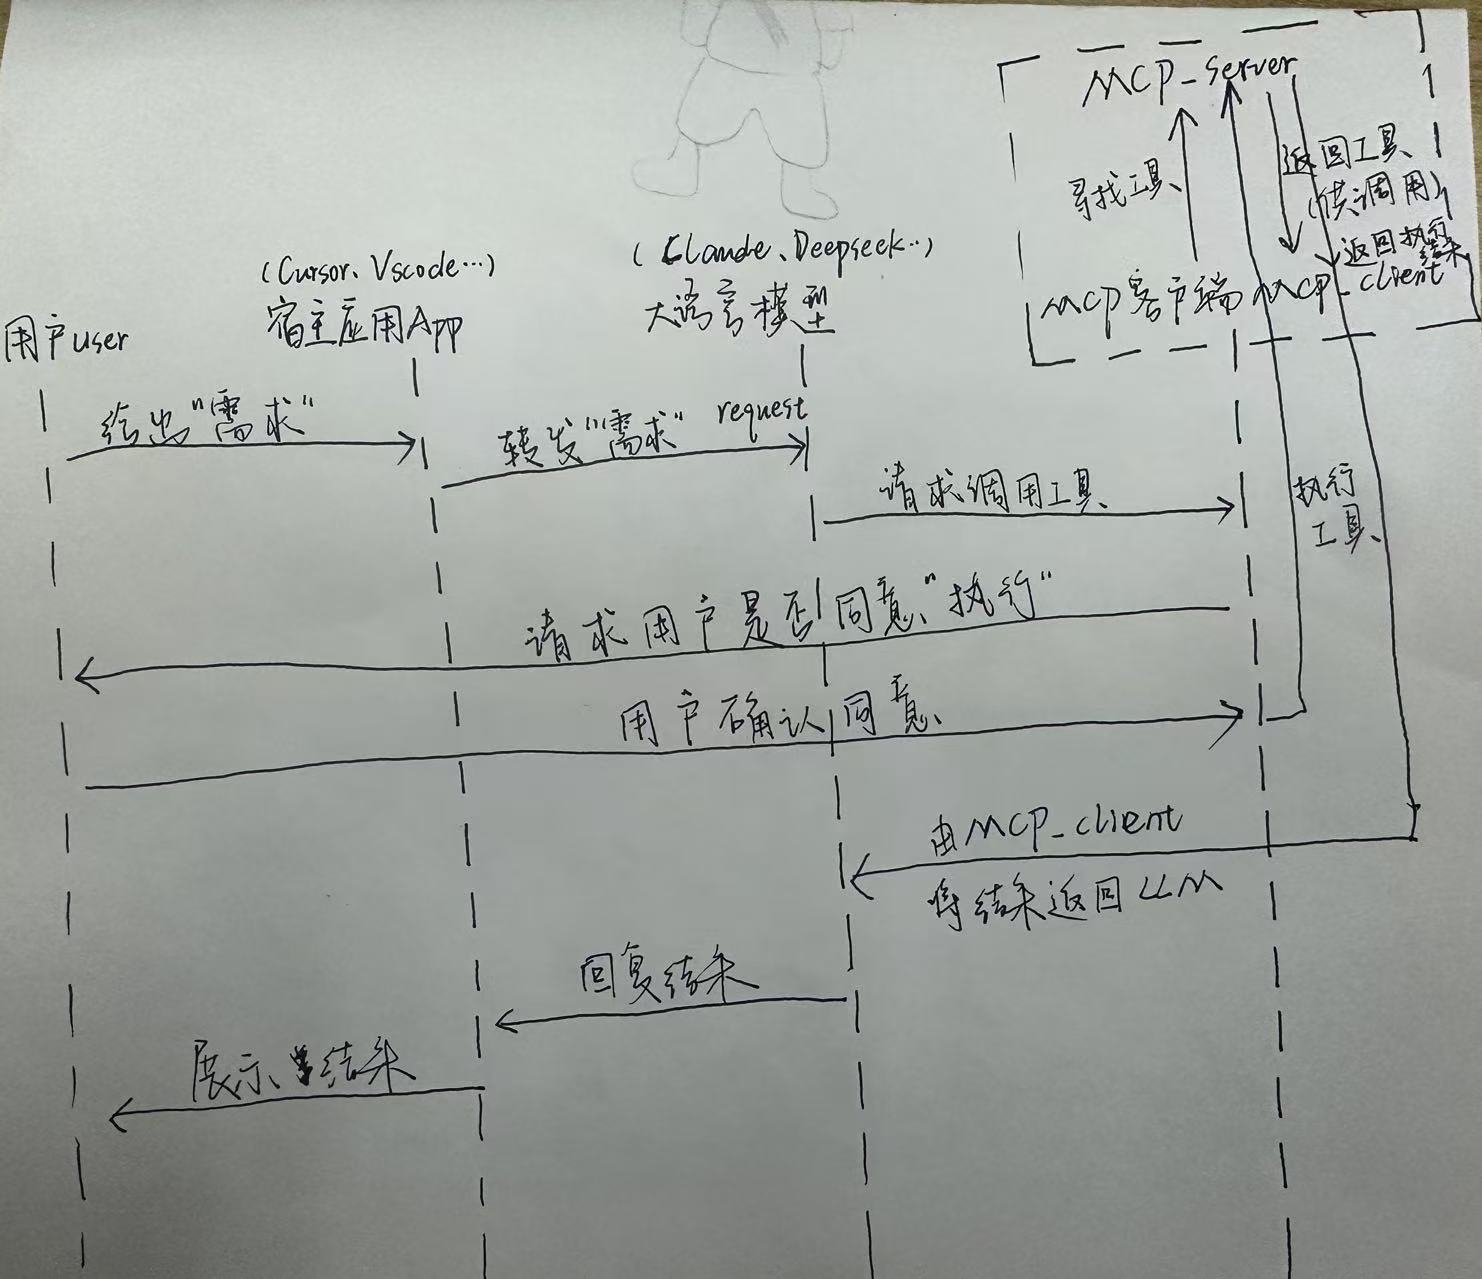 MCP_server
寻找工具
返回工具
(供调用)
返回执行
结果
(Cursor、Vscode…)
(Claude、Deepseek…)
用户user
宿主应用App
大语言模型
MCP客户端 MCP_client
给出"需求"
转发"需求" request
请求调用工具
执行
工具
请求用户是否同意"执行"
用户确认同意
由MCP_client
将结果返回LLM
回复结果
展示结果